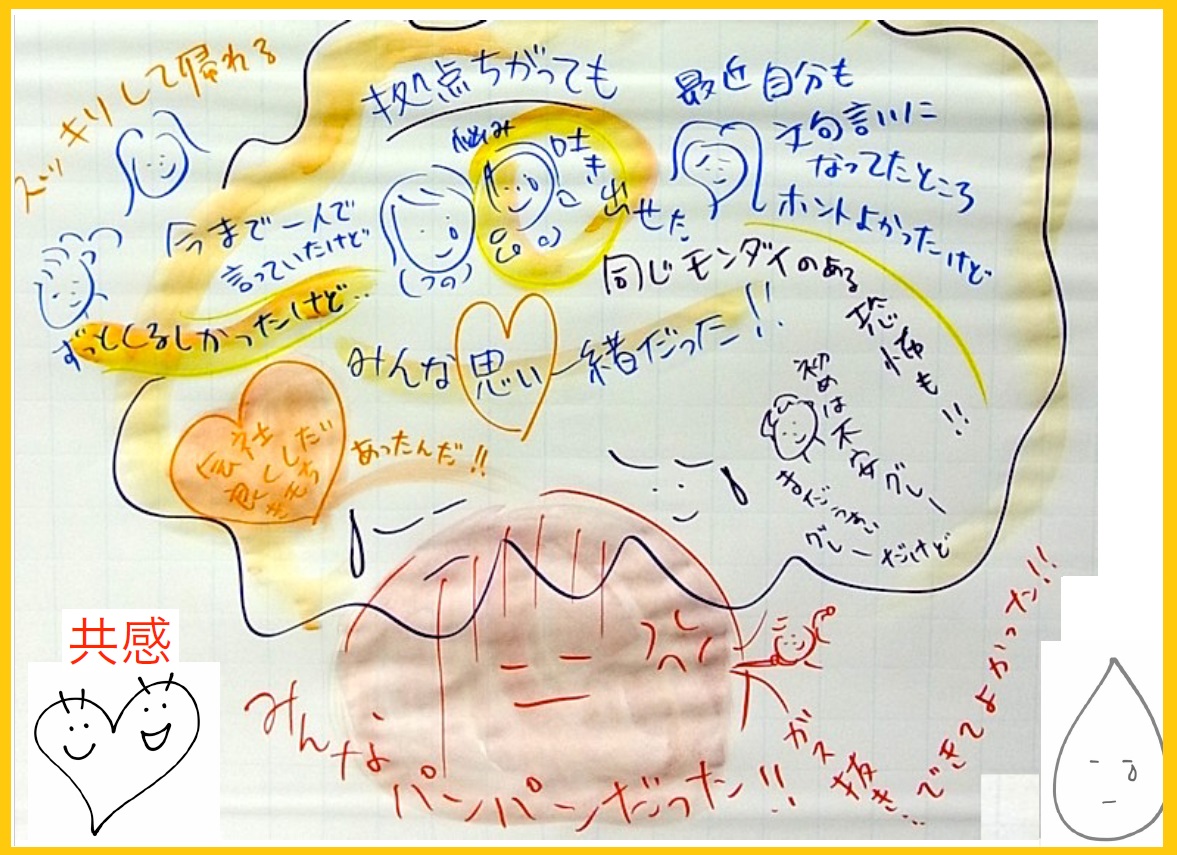 スッキリして帰れる
拠点ちがっても
悩み
吐き出せた
最近自分も
文句言いに
なってたところ
ホントよかったけど
今まで一人で
言っていたけど
ずっとくるしかったけど…
同じモンダイのある
恐怖も!!
みんな思い一緒だった!!
初めは不安グレー
グレーだけど
会社
あったんだ!!
共感
みんな
パンパンだった!!
ガス抜き…
できてよかった!!